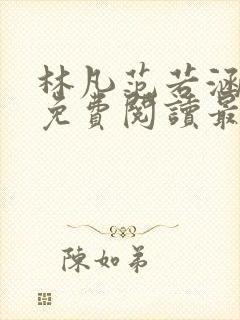 林凡范若涵
免費閱讀最
陳如弟